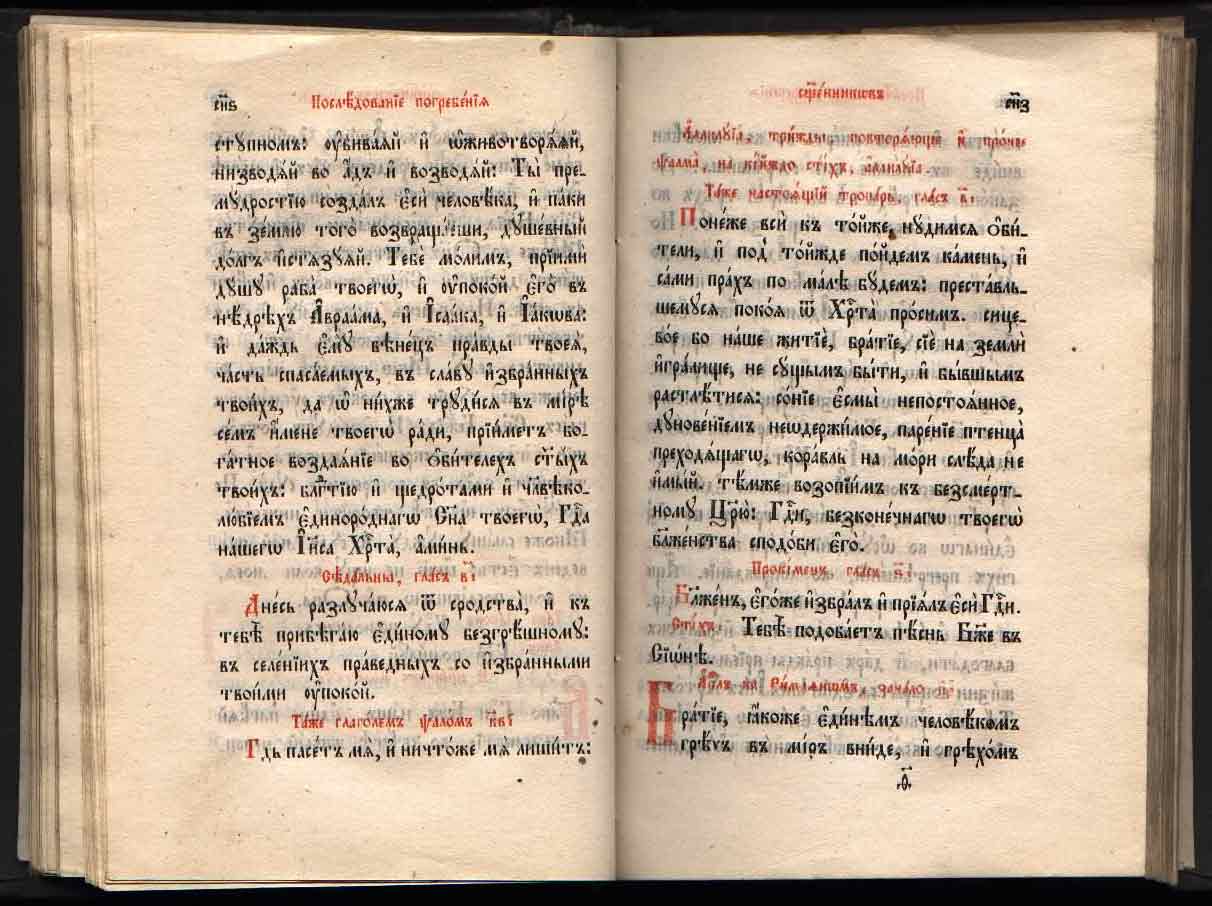 сн҃ѕ Послѣ́дованїе погребе́нїѧ
стꙋпномъ: ᲂу҆бива́ѧй и҆ ѡ҆животворѧ́ѧй,
низводѧ́й во а҆́дъ и҆ возводѧ́й: Ты̀ пре-
мꙋ́дростїю созда́лъ є҆сѝ человѣ́ка, и҆ па́ки
въ зе́млю того̀ возвраща́еши, дꙋше́вный
до́лгъ и҆стѧзꙋ́ѧй. Тебѐ мо́лимъ, прїимѝ
дꙋ́шꙋ раба̀ твоегѡ̀, и҆ ᲂу҆поко́й є҆го̀ въ
нѣ́дрѣхъ А҆враа́ма, и҆ І҆саа́ка, и҆ І҆а́кѡва:
и҆ да́ждь є҆мꙋ̀ вѣне́цъ пра́вды твоеѧ̀,
ча́сть спаса́емыхъ, въ сла́вꙋ и҆збра́нныхъ
твои́хъ, да ѡ҆ ни́хже трꙋди́сѧ въ мі́рѣ
се́мъ и҆́мене твоегѡ̀ ра́ди, прїи́метъ бо-
га́тное воздаѧ́нїе во ѻ҆би́телехъ ст҃ы́хъ
твои́хъ: бл҃гтїю и҆ щедро́тами и҆ чл҃вѣко-
лю́бїемъ є҆диноро́днагѡ Сн҃а твоегѡ̀, Гдⷭ҇а
на́шегѡ І҆и҃са Хрⷭ҇та̀, а҆ми́нь.
Сѣда́льны, гла́съ в҃:
Дне́сь разлꙋча́юсѧ ѿ сро́дства, и҆ къ
тебѣ̀ прибѣга́ю є҆ди́номꙋ безгрѣ́шномꙋ:
въ селе́нїихъ пра́ведныхъ со и҆збра́нными
твои́ми ᲂу҆поко́й.
Та́же глаго́лемъ ѱало́мъ к҃в:
Гдⷭ҇ь пасе́тъ мѧ̀, и҆ ничто́же мѧ̀ лиши́тъ:
сщ҃е́нникѡвъ сн҃з
А҆ллилꙋ́їа, три́жды повторѧ́юще и҆ про́чее
ѱалма̀, на ко́йждо сті́хъ, а҆ллилꙋ́їа.
Та́же настоѧ́щїй тропа́рь, гла́съ в҃:
Поне́же всѝ къ то́йже нꙋ́димсѧ ѻ҆би́-
тели, и҆ под̾ то́йжде по́йдемъ ка́мень, и҆
са́ми пра́хъ по ма́лѣ бꙋ́демъ: преста́вль-
шемꙋсѧ поко́ѧ ѿ Хрⷭ҇та̀ про́симъ. сице-
во́е бо на́ше житїѐ, бра́тїе, сїѐ на землѝ
и҆гра́лище, не сꙋ́щымъ бы́ти, и҆ бы́вшымъ
растлѣ́тисѧ: со́нїе є҆смы̀ непостоѧ́нное,
дꙋнове́нїемъ неѡдержи́мое, паре́нїе птенца̀
преходѧ́щагѡ, кора́бль на мо́ри слѣ́да не
и҆мы́й. тѣ́мже возопїи́мъ къ безсме́рт-
номꙋ Цр҃ю̀: Гдⷭ҇и, безконе́чнагѡ твоегѡ̀
бл҃же́нства сподо́би є҆го̀.
Прокі́менъ, гла́съ в҃:
Бл҃же́нъ, є҆го́же и҆збра́лъ и҆ прїѧ́лъ є҆сѝ Гдⷭ҇и.
Сті́хъ: Тебѣ̀ подоба́етъ пѣ́снь Бж҃е въ
Сїѡ́нѣ.
А҆пⷭ҇лъ къ Ри́млѧнѡмъ, зача́ло
Бра́тїе, ꙗ҆́коже є҆ди́нѣмъ человѣ́комъ
грѣ́хъ въ мі́ръ вни́де, и҆ грѣхо́мъ
ѳ҃